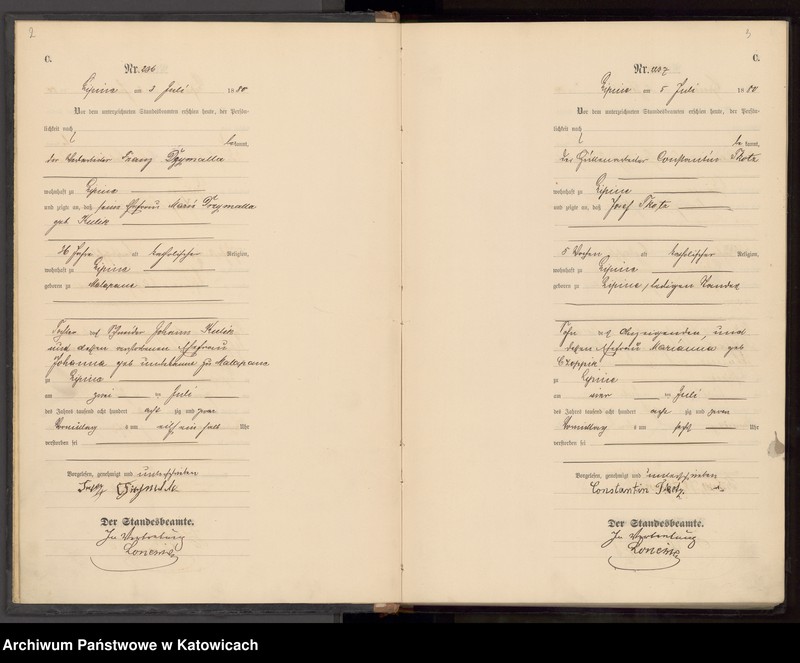 2
C.
Nr. 206
Lipine am 3 Juli 1880
Vor dem unterzeichneten Standesbeamten erschien heute, der Persön-
lichkeit nach
bekannt,
der Franz
wohnhaft zu Lipine
und zeigte an, daß seine Ehefrau Marie
geb Kulik
36 Jahre alt katholischer Religion,
wohnhaft zu Lipine
geboren zu Malapane
Tochter des Schneider Johann Kulik
und dessen verstorbenen Ehefrau
Johanna geb unbekannt zu Malapane
zu Lipine
am zwei ten Juli
des Jahres tausend acht hundert acht zig und
Vormittag s um elf ein halb Uhr
verstorben sei
Vorgelesen, genehmigt und unterschrieben
Der Standesbeamte.
In Vertretung
3
C.
Nr. 207
Lipine am 5 Juli 1880
Vor dem unterzeichneten Standesbeamten erschien heute, der Persön-
lichkeit nach
bekannt,
der Constantin Skotz
wohnhaft zu Lipine
und zeigte an, daß Josef Skotz
5 Wochen alt katholischer Religion,
wohnhaft zu Lipine
geboren zu Lipine, ledigen Standes
Sohn des Anzeigenden und
dessen Ehefrau Marianna geb
zu Lipine
am vier ten Juli
des Jahres tausend acht hundert acht zig und
Vormittag s um sechs Uhr
verstorben sei
Vorgelesen, genehmigt und unterschrieben
Constantin Skotz
Der Standesbeamte.
In Vertretung
Archiwum Państwowe w Katowicach